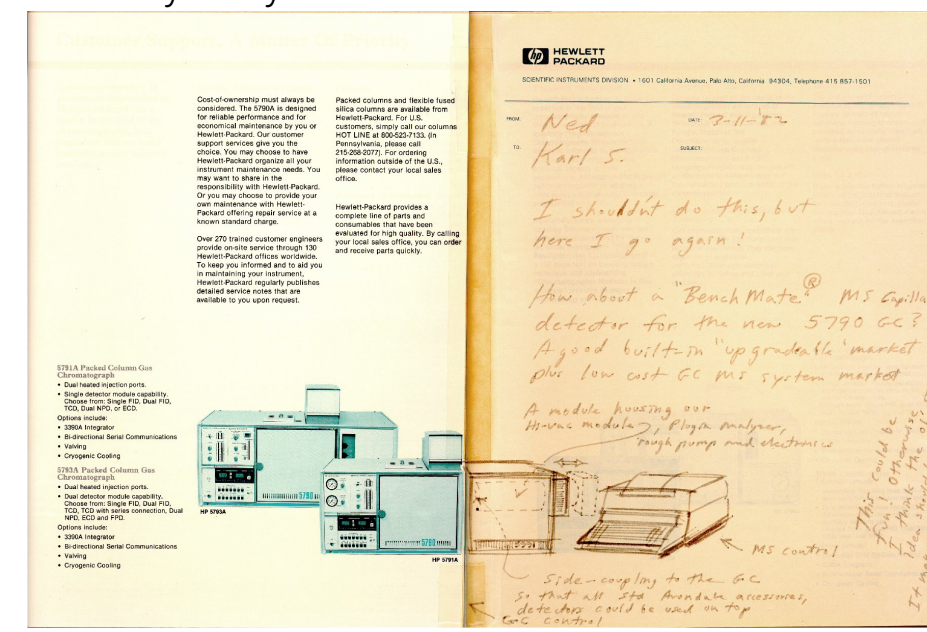 Customer Support: A Matter Of Priority
Cost-of-ownership must always be
considered. The 5790A is designed
for reliable performance and for
economical maintenance by you or
Hewlett-Packard. Our customer
support services give you the
choice. You may choose to have
Hewlett-Packard organize all your
instrument maintenance needs. You
may want to share in the
responsibility with Hewlett-Packard.
Or you may choose to provide your
own maintenance with Hewlett-
Packard offering repair service at a
known standard charge.
Over 270 trained customer engineers
provide on-site service through 130
Hewlett-Packard offices worldwide.
To keep you informed and to aid you
in maintaining your instrument,
Hewlett-Packard regularly publishes
detailed service notes that are
available to you upon request.
Packed columns and flexible fused
silica columns are available from
Hewlett-Packard. For U.S.
customers, simply call our columns
HOT LINE at 800-523-7133. (In
Pennsylvania, please call
215-268-2077). For ordering
information outside of the U.S.,
please contact your local sales
office.
Hewlett-Packard provides a
complete line of parts and
consumables that have been
evaluated for high quality. By calling
your local sales office, you can order
and receive parts quickly.
5791A Packed Column Gas
Chromatograph
• Dual heated injection ports.
• Single detector module capability.
Choose from: Single FID, Dual FID,
TCD, Dual NPD, or ECD.
Options include:
• 3390A Integrator
• Bi-directional Serial Communications
• Valving
• Cryogenic Cooling
5793A Packed Column Gas
Chromatograph
• Dual heated injection ports.
• Dual detector module capability.
Choose from: Single FID, Dual FID,
TCD, TCD with series connection, Dual
NPD, ECD and FPD.
Options include:
• 3390A Integrator
• Bi-directional Serial Communications
• Valving
• Cryogenic Cooling
5790
HP 5793A
5790
HP 5791A
hp HEWLETT
PACKARD
SCIENTIFIC INSTRUMENTS DIVISION • 1601 California Avenue, Palo Alto, California 94304, Telephone 415 857-1501
FROM: Ned DATE: 3-11-'82
TO: Karl S. SUBJECT:
I shouldn't do this, but
here I go again!
How about a "BenchMate"® MS Capilla
detector for the new 5790 GC?
A good built-in "upgradeable" market
plus low cost GC MS system market
A module housing our
Hi-vac module, Plugin Analyzer,
rough pump and electronics
MS control
Side-coupling to the GC
so that all std Avondale accessories,
detectors could be used on top
GC control
This could be
fun! Otherwise,
I think the
idea should